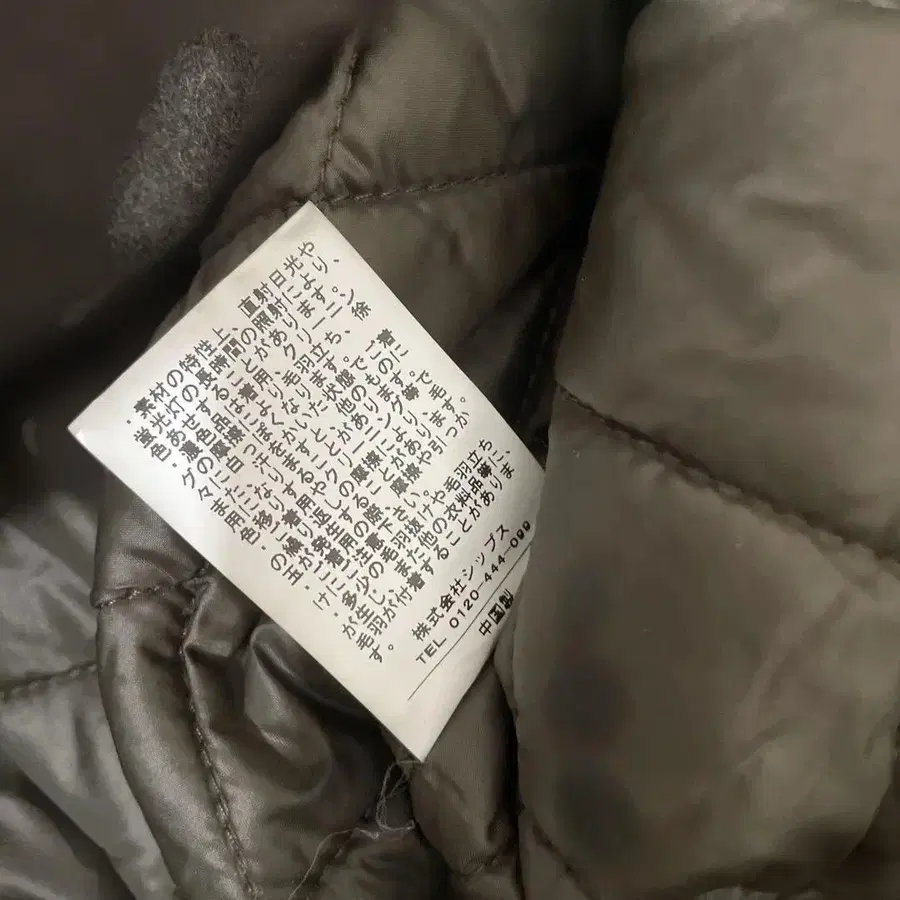 ・素材の特性上、直射日光や
蛍光灯の長時間の照射により、
色あせすることがあります。
・濃色品は着用、クリーニン
グの摩擦により毛羽立ち、徐
々に白っぽくなります。
また、汗をかいた状態でご着
用になりますと、他のものに
色移りすることがあります。
・ご着用やクリーニング等で
の繰り返しの摩擦により、毛
玉が発生することがあります。
ご着用の際、摩擦や引っか
けにご注意下さい。
・多少の毛羽抜けや毛羽立ち
が生じ、また他の衣料品等に、
毛羽が付着することがありま
す。
株式会社シップス
TEL 0120-444-099
中国製